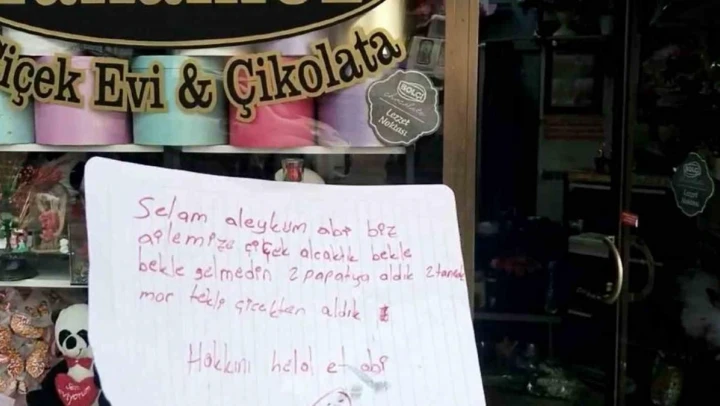 içek Evi & Çikolata
BOLÇİ
chocolate
Lezzet
Noktası
Selam aleykum abi biz
ailemize çiçek alcaktık bekle
bekle gelmedin 2 papatya aldık 2 tane
mor tekli çiçekten aldık
Hakkını helal et abi